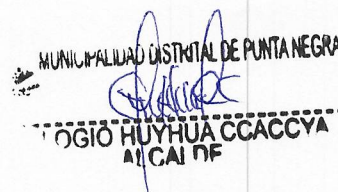 MUNICIPALIDAD DISTRITAL DE PUNTA NEGRA
OGIO HUYHUA CCACCYA
ALCALDE